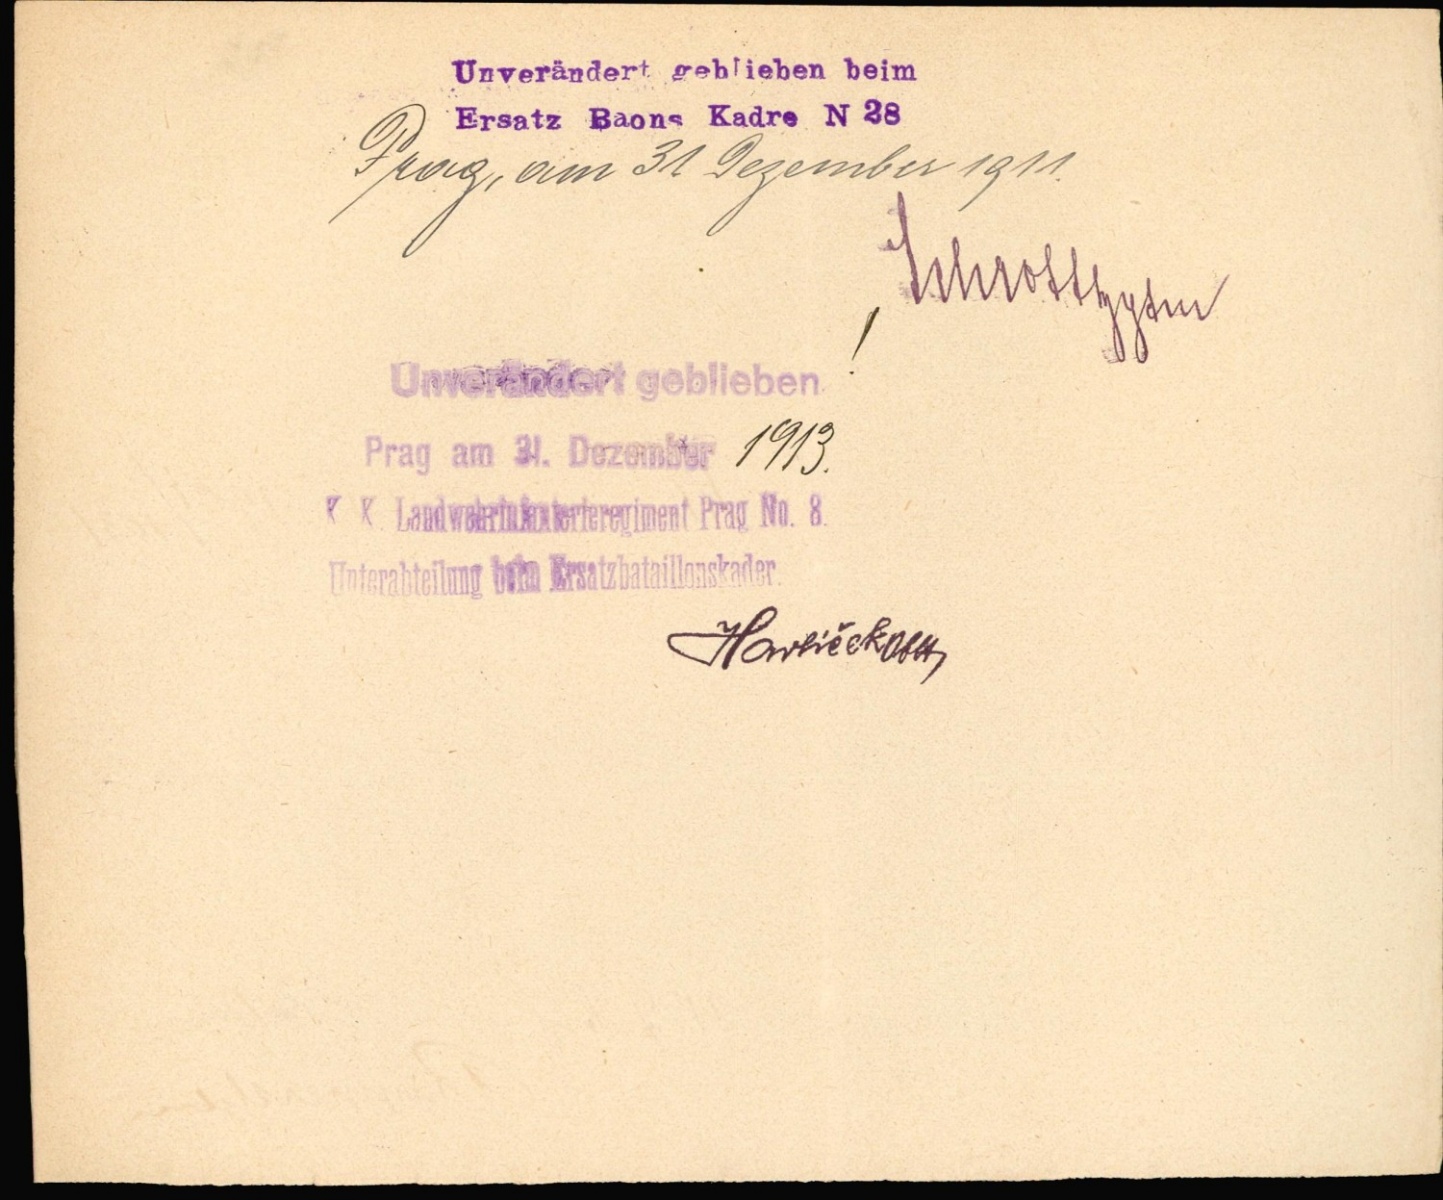 Unverändert geblieben beim
Ersatz Baons Kadre N 28
Prag, am 31 Dezember 1911.
Unverändert geblieben
Prag am 31. Dezember 1913.
K K Landwehrinfanterieregiment Prag No. 8.
Unterabteilung beim Ersatzbataillonskader.
Havlíček Oblt